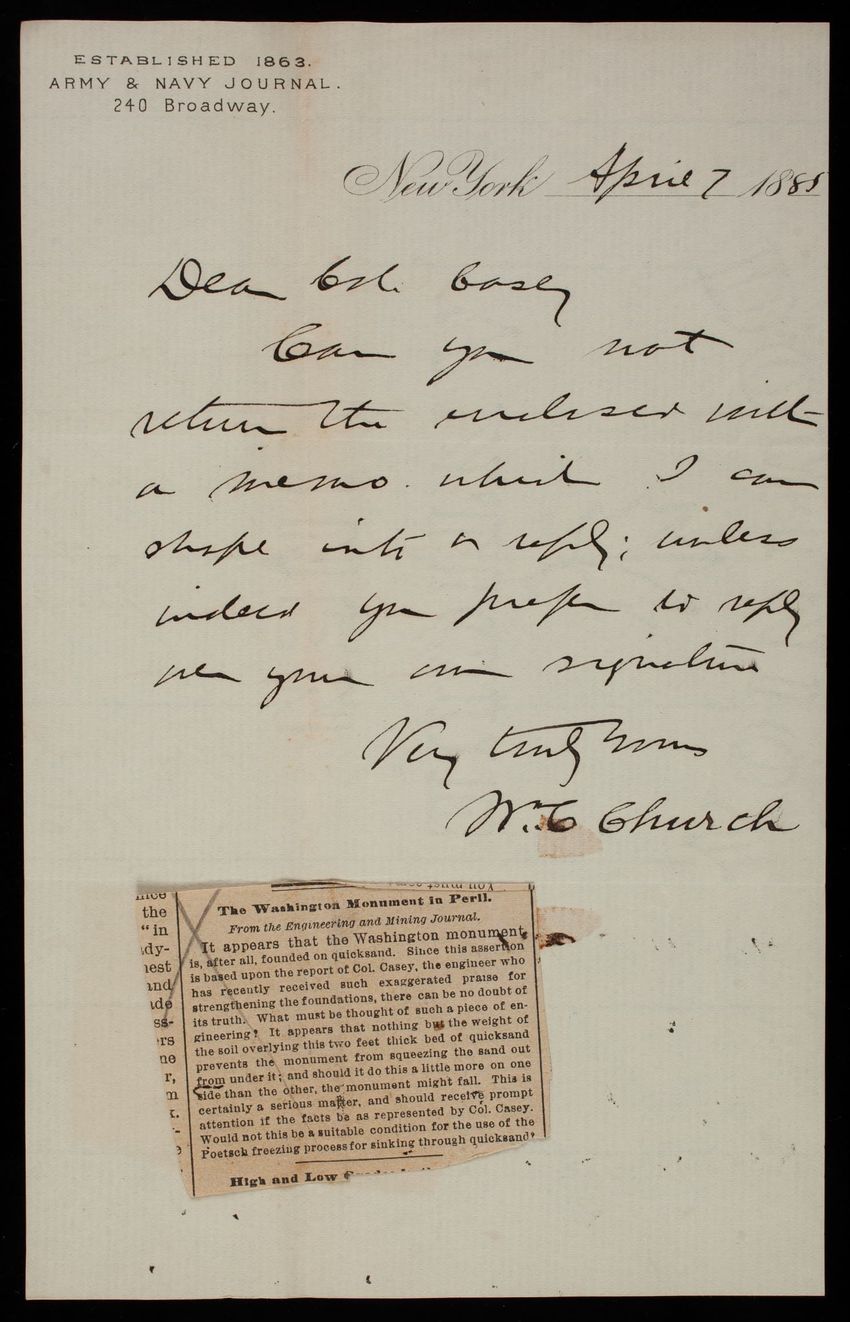 ESTABLISHED 1863.
ARMY & NAVY JOURNAL.
240 Broadway.
New York April 7 1885
Dear Col. Casey
Can you not
return the enclosed with
a memo. which I can
shape into a reply; unless
indeed you prefer to reply
over your own signature
Very truly Yours
Wm. C Church
You must
the
"in
dy-
nest
and
ade
ss-
rs
ne
r,
m
The Washington Monument in Peril.
From the Engineering and Mining Journal.
It appears that the Washington monument,
is, after all, founded on quicksand. Since this assertion
is based upon the report of Col. Casey, the engineer who
has recently received such exaggerated praise for
strengthening the foundations, there can be no doubt of
its truth. What must be thought of such a piece of en-
gineering? It appears that nothing but the weight of
the soil overlying this two feet thick bed of quicksand
prevents the monument from squeezing the sand out
from under it; and should it do this a little more on one
side than the other, the monument might fall. This is
certainly a serious matter, and should receive prompt
attention if the facts be as represented by Col. Casey.
Would not this be a suitable condition for the use of the
Poetsch freezing process for sinking through quicksand?
High and Low